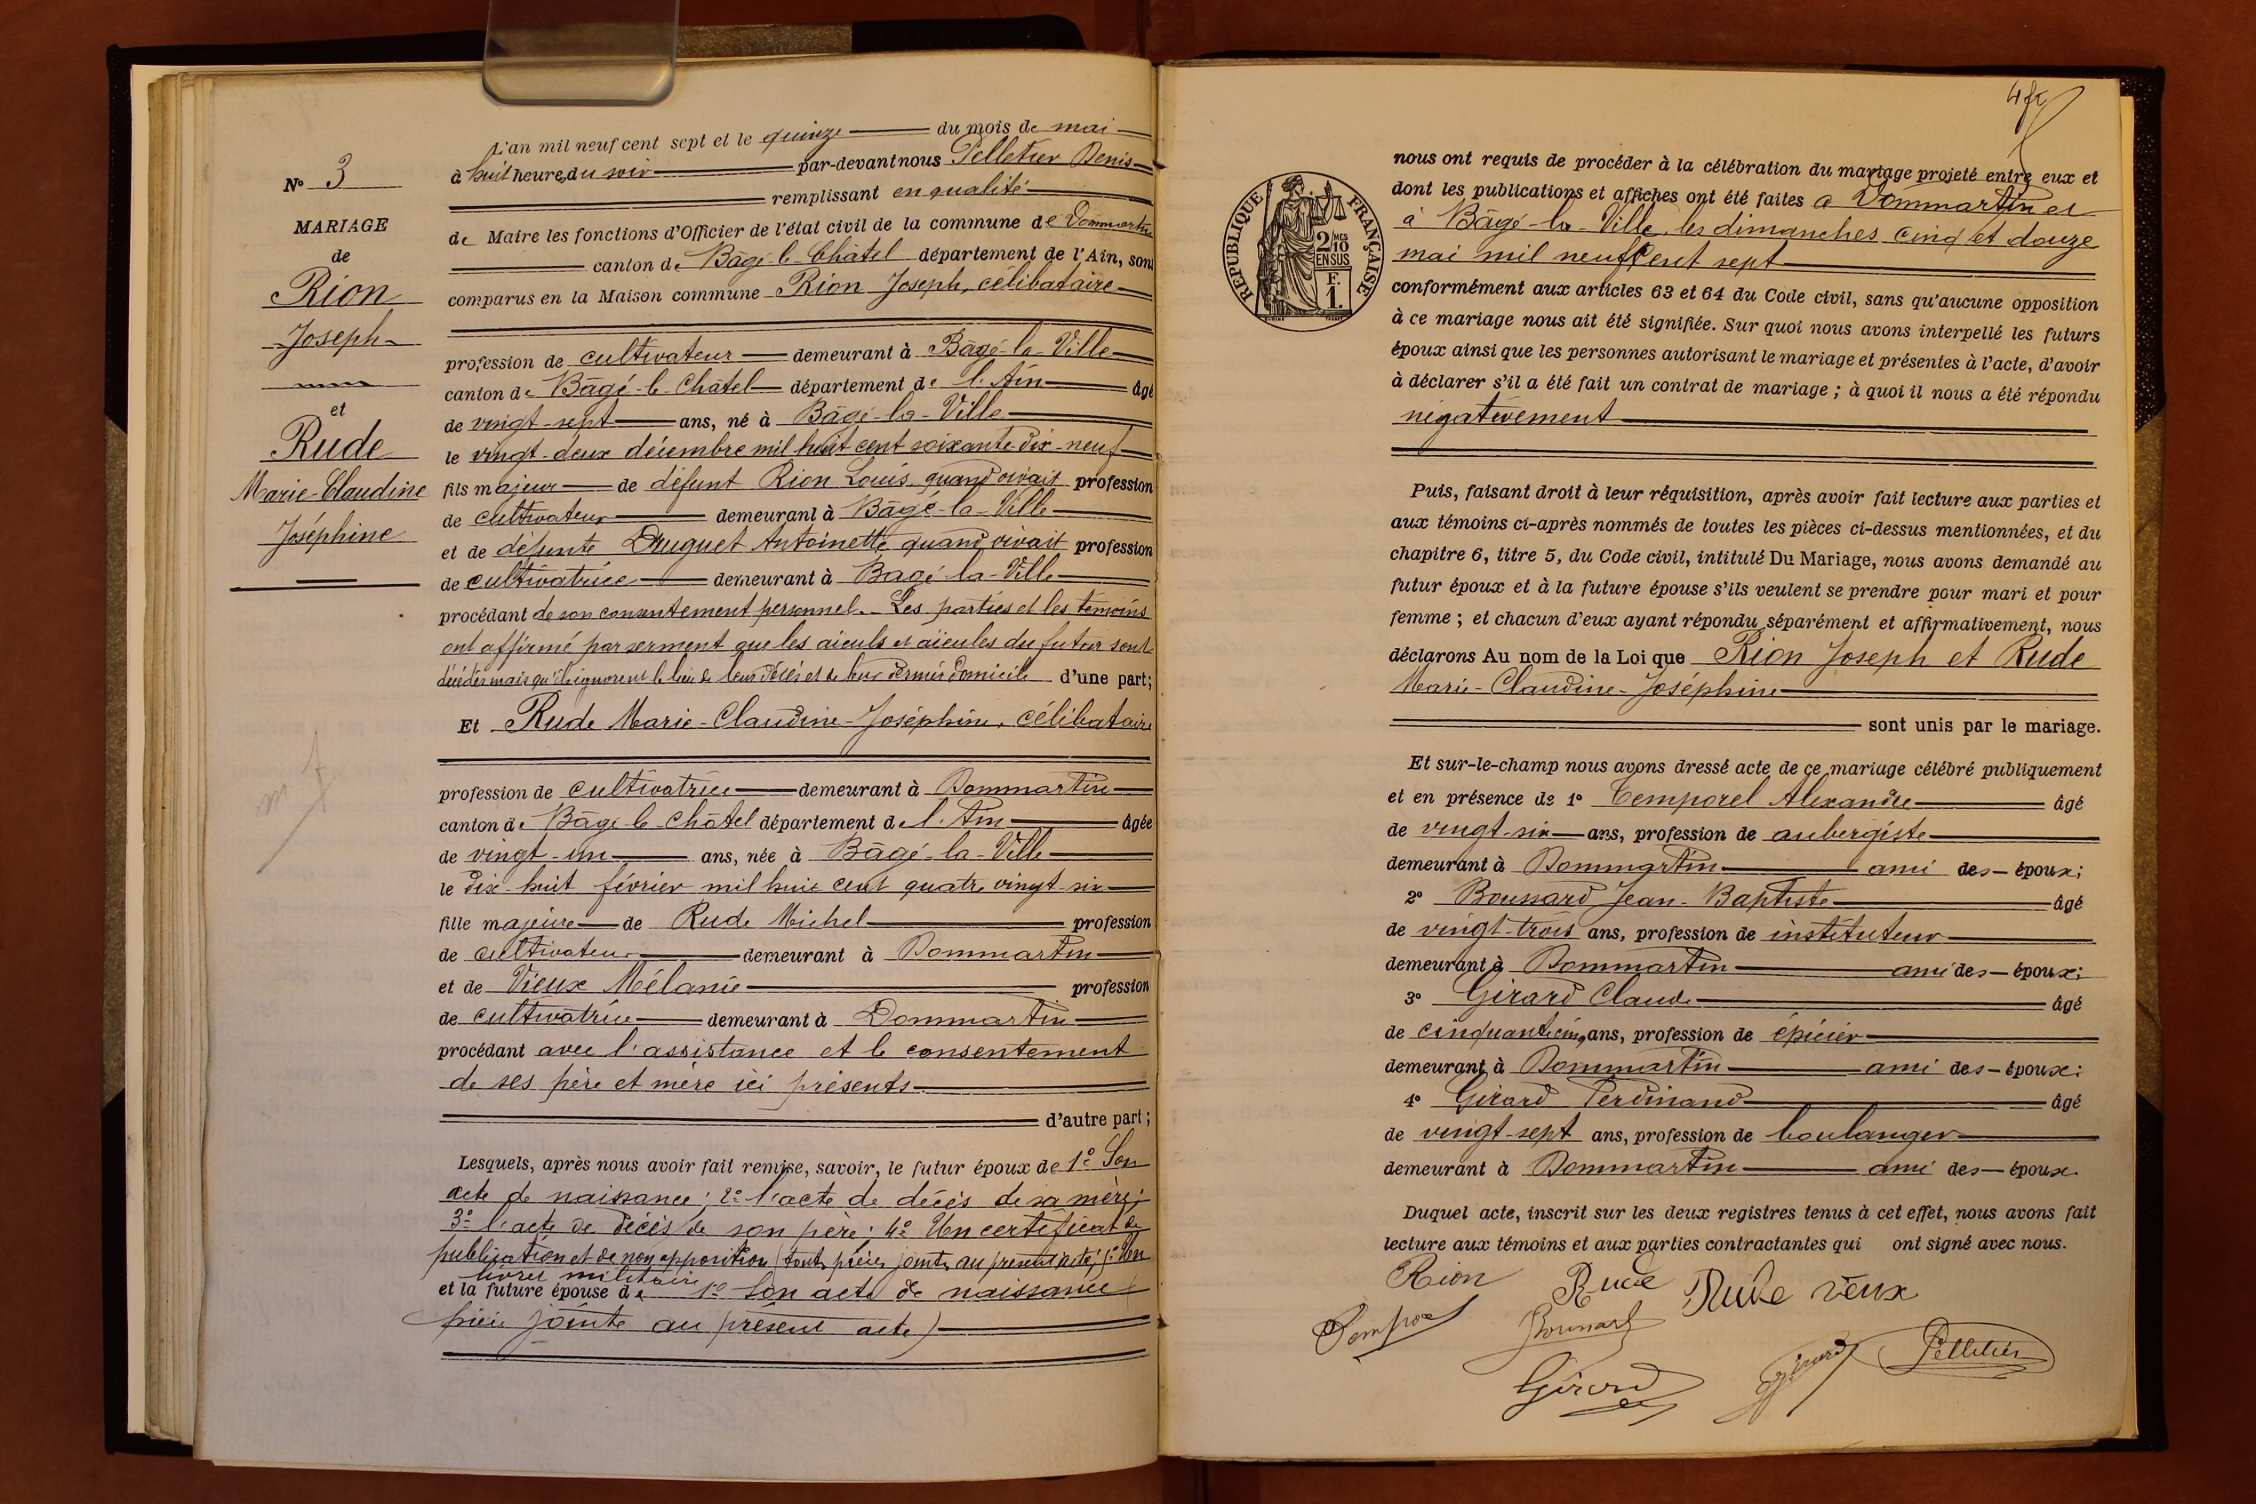 L'an mil neuf cent sept et le quinze du mois de mai
à huit heures du soir par-devant nous Pelletier Denis
remplissant en qualité
de Maire les fonctions d'Officier de l'état civil de la commune de Dommartin
canton de Bâgé-le-Châtel département de l'Ain, sont
comparus en la Maison commune Rion Joseph, célibataire
profession de cultivateur demeurant à Bâgé-la-Ville
canton de Bâgé-le-Châtel département de l'Ain âgé
de vingt-sept ans, né à Bâgé-la-Ville
le vingt-deux décembre mil huit cent soixante dix-neuf
fils majeur de défunt Rion Louis quand vivait profession
de cultivateur demeurant à Bâgé-la-Ville
et de défunte Druguet Antoinette quand vivait profession
de cultivatrice demeurant à Bagé-la-Ville
procédant de son consentement personnel. Les parties et les témoins
ont affirmé par serment que les aieuls et aïeules du futur sont
décédés mais qu'ils ignorent le lieu de leur décès et de leur dernier domicile d'une part;
Et Rude Marie-Claudine-Joséphine, célibataire
profession de cultivatrice demeurant à Dommartin
canton de Bâgé-le-Châtel département de l'Ain âgée
de vingt-un ans, née à Bâgé-la-Ville
le dix-huit février mil huit cent quatre vingt-six
fille majeure de Rude Michel profession
de cultivateur demeurant à Dommartin
et de Vieux Mélanie profession
de cultivatrice demeurant à Dommartin
procédant avec l'assistance et le consentement
de ses père et mère ici présents
d'autre part;
Lesquels, après nous avoir fait remise, savoir, le futur époux de 1º Son
acte de naissance; 2º l'acte de décès de sa mère;
3º l'acte de décès de son père; 4º Un certificat de
publication et de non opposition (toutes pièces jointes au présent acte) 5º Un
livret militaire
et la future épouse de 1º Son acte de naissance (
pièce jointe au présent acte)
Nº 3
MARIAGE
de
Rion
Joseph
et
Rude
Marie-Claudine
Joséphine
4
RÉPUBLIQUE FRANÇAISE
2/10MES
EN SUS
F.
1.
nous ont requis de procéder à la célébration du mariage projeté entre eux et
dont les publications et affiches ont été faites a Dommartin et
à Bâgé-la-Ville, les dimanches cinq et douze
mai mil neuf cent sept
conformément aux articles 63 et 64 du Code civil, sans qu'aucune opposition
à ce mariage nous ait été signifiée. Sur quoi nous avons interpellé les futurs
époux ainsi que les personnes autorisant le mariage et présentes à l'acte, d'avoir
à déclarer s'il a été fait un contrat de mariage; à quoi il nous a été répondu
négativement
Puis, faisant droit à leur réquisition, après avoir fait lecture aux parties et
aux témoins ci-après nommés de toutes les pièces ci-dessus mentionnées, et du
chapitre 6, titre 5, du Code civil, intitulé Du Mariage, nous avons demandé au
futur époux et à la future épouse s'ils veulent se prendre pour mari et pour
femme; et chacun d'eux ayant répondu séparément et affirmativement, nous
déclarons Au nom de la Loi que Rion Joseph et Rude
Marie-Claudine-Joséphine
sont unis par le mariage.
Et sur-le-champ nous avons dressé acte de ce mariage célébré publiquement
et en présence de 1º Temporel Alexandre âgé
de vingt-six ans, profession de aubergiste
demeurant à Dommartin ami des époux;
2º Bonnard Jean-Baptiste âgé
de vingt-trois ans, profession de instituteur
demeurant à Dommartin ami des époux;
3º Girard Claude âgé
de cinquante cinq ans, profession de épicier
demeurant à Dommartin ami des époux;
4º Girard Ferdinand âgé
de vingt-sept ans, profession de boulanger
demeurant à Dommartin ami des époux.
Duquel acte, inscrit sur les deux registres tenus à cet effet, nous avons fait
lecture aux témoins et aux parties contractantes qui ont signé avec nous.
Rion Rude Rude vieux
Bonnard
Girard Girard Pelletier